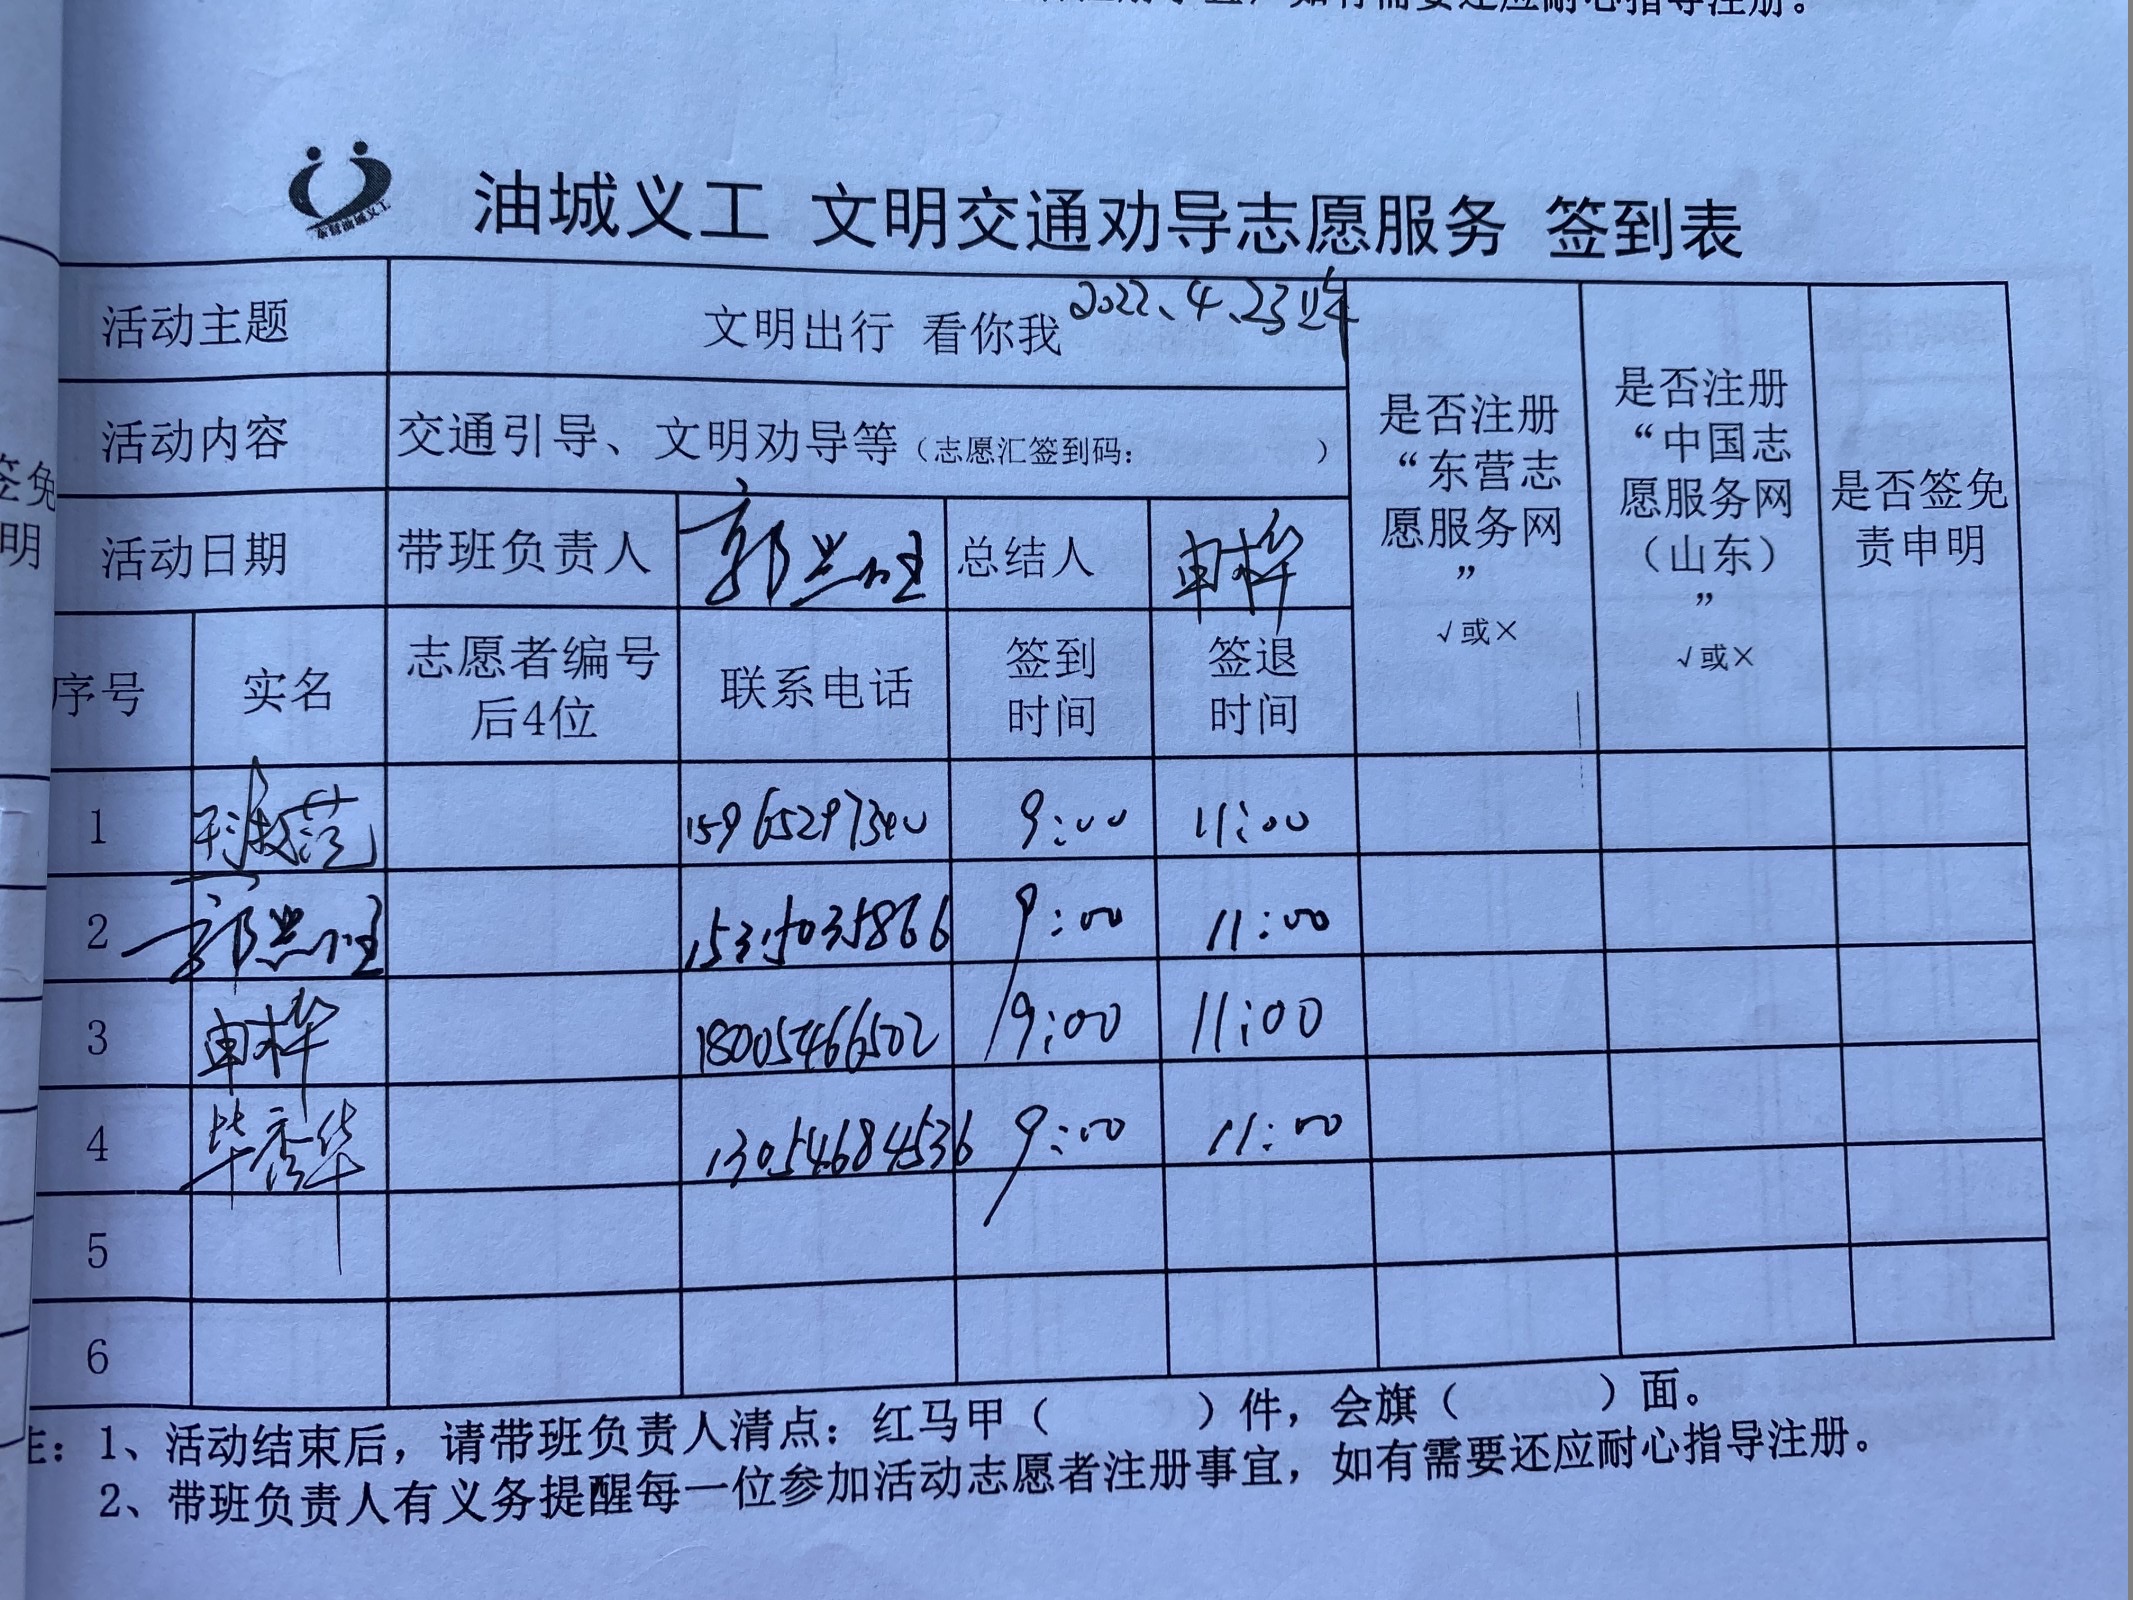 如有需要还应耐心指导注册。
东营油城义工
油城义工 文明交通劝导志愿服务 签到表
活动主题 文明出行 看你我 2022、4、23上午
活动内容 交通引导、文明劝导等（志愿汇签到码： ）
活动日期 带班负责人 郭兰 总结人 申桦
是否注册
“东营志
愿服务网
”
√或×
是否注册
“中国志
愿服务网
（山东）
”
√或×
是否签免
责申明
序号 实名 志愿者编号
后4位 联系电话 签到
时间 签退
时间
1 15965297340 9:00 11:00
2 郭兰 15315035866 9:00 11:00
3 申桦 18005466502 9:00 11:00
4 毕秀华 13054684536 9:00 11:00
5
6
注：1、活动结束后，请带班负责人清点：红马甲（ ）件，会旗（ ）面。
2、带班负责人有义务提醒每一位参加活动志愿者注册事宜，如有需要还应耐心指导注册。
签免
明